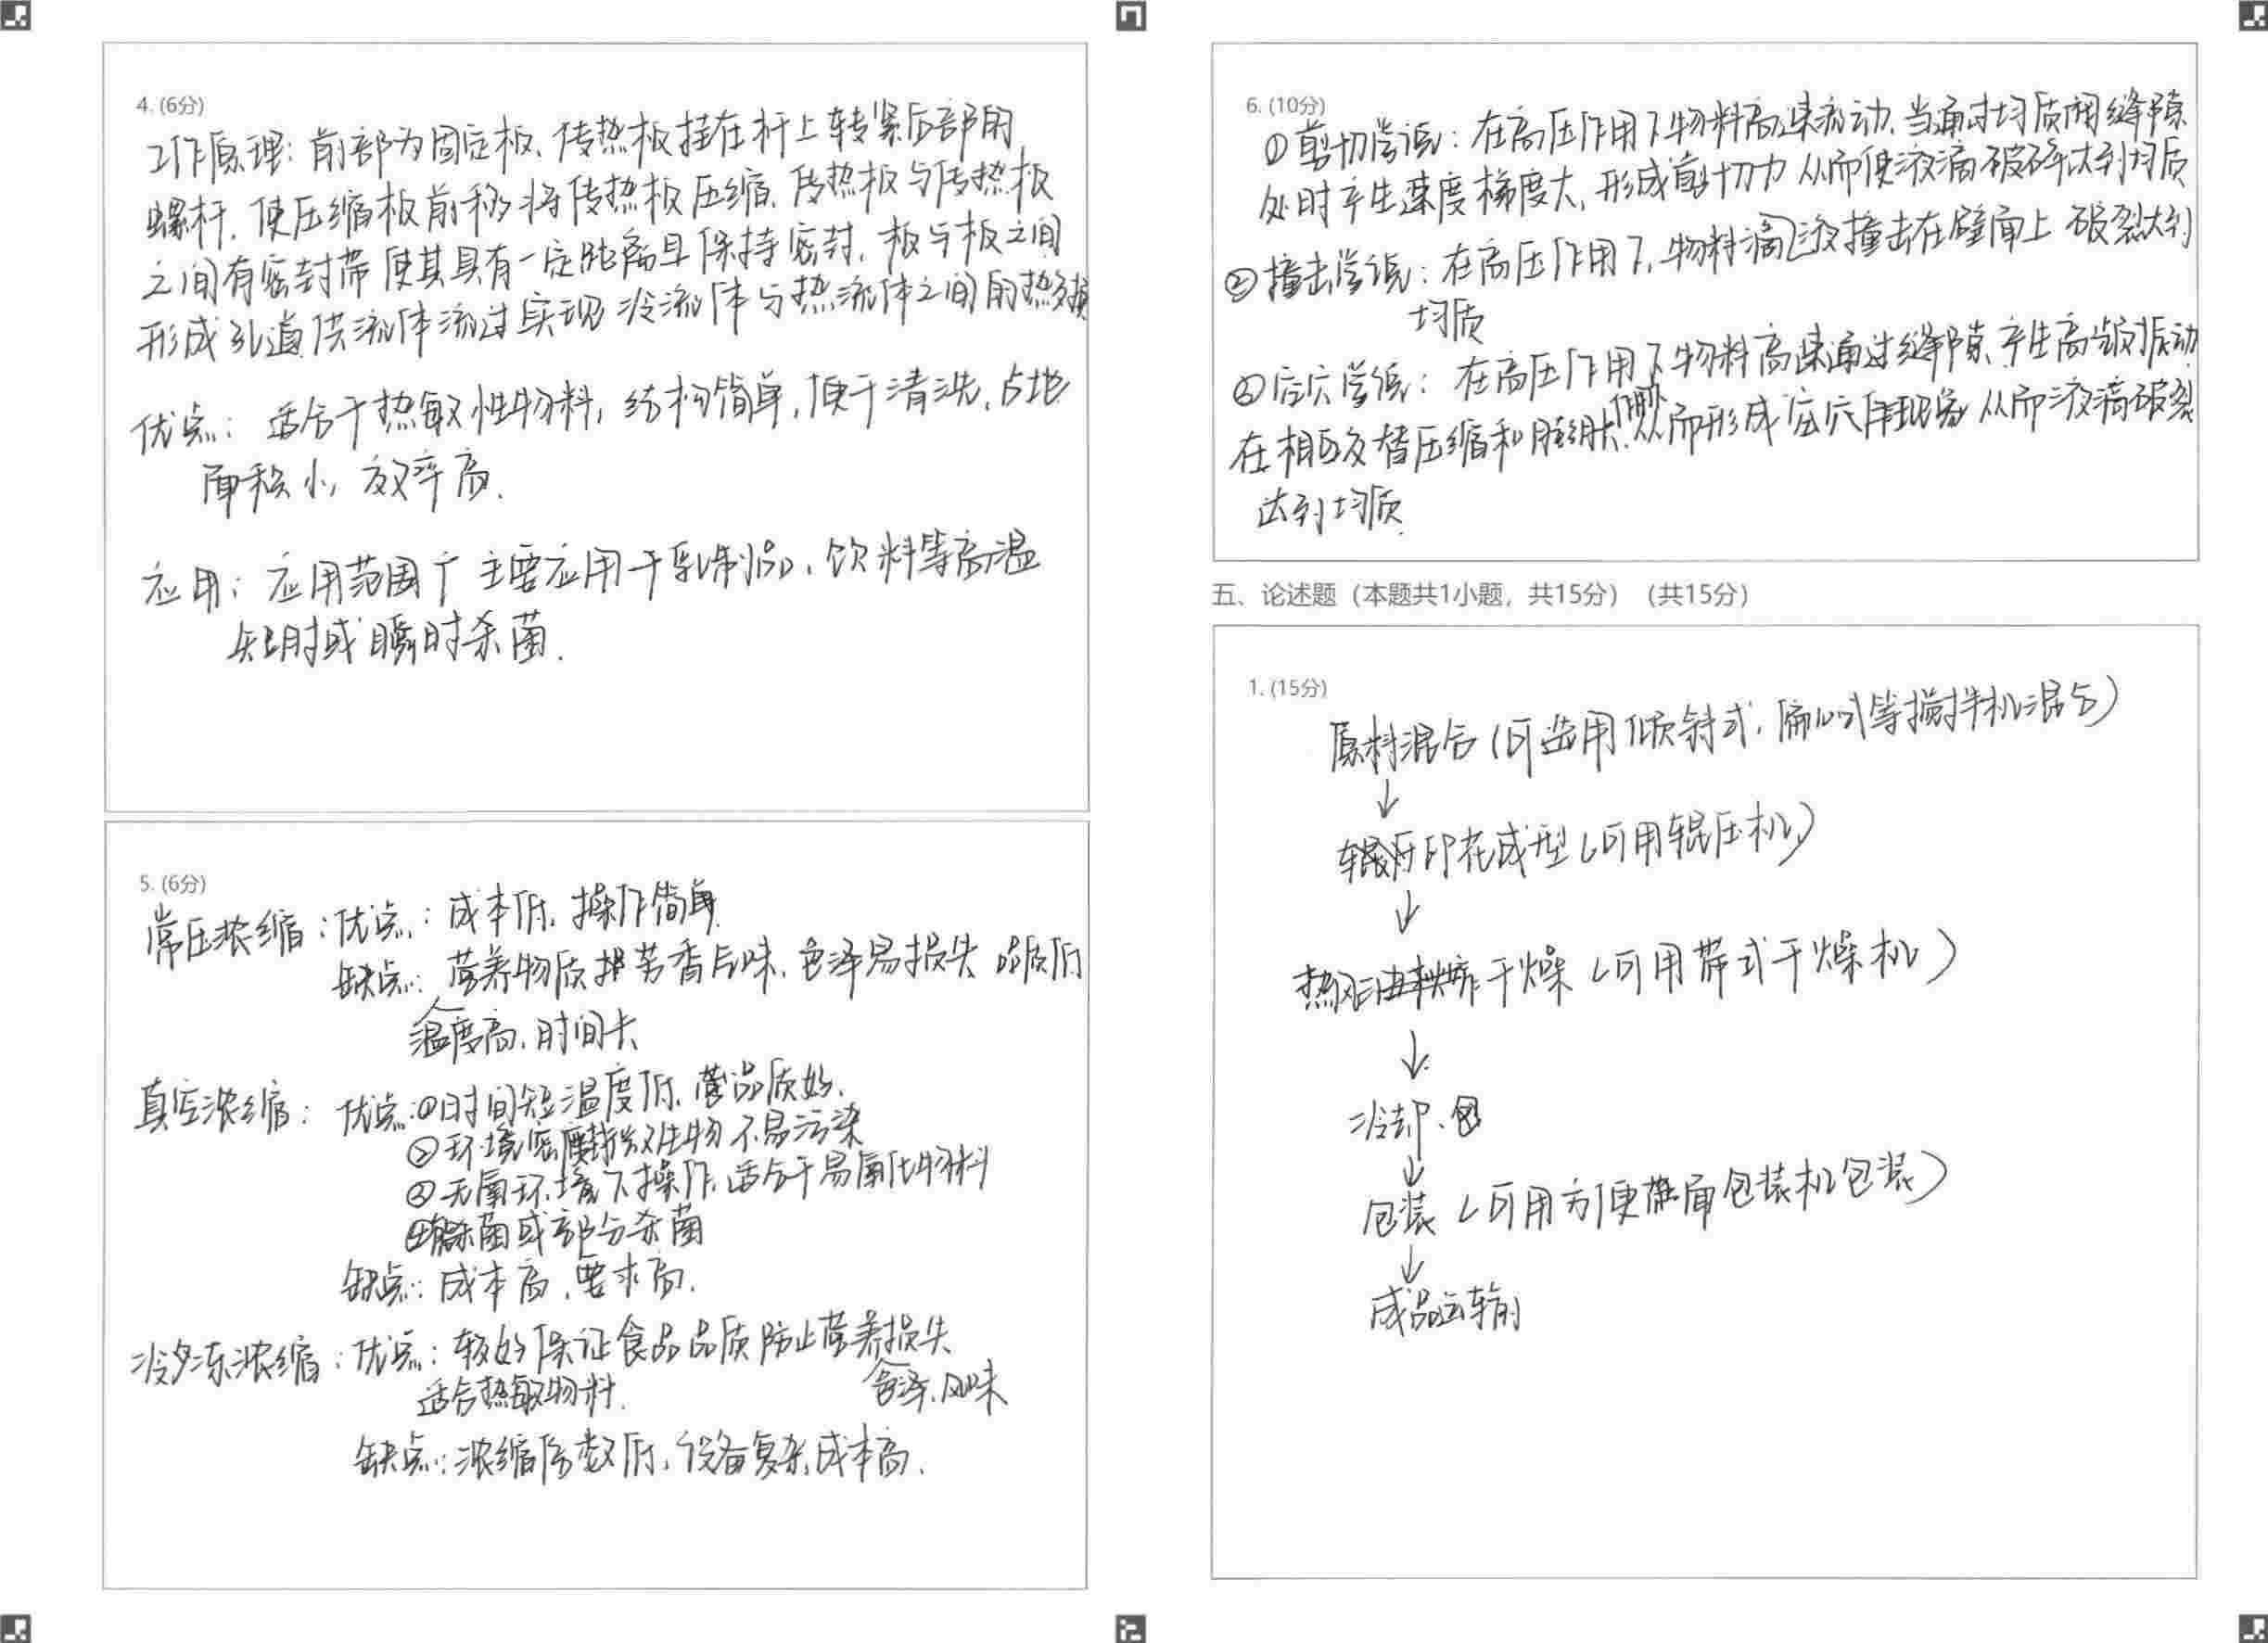 4. (6分)
工作原理：前部为固定板、传热板挂在杆上转紧后部的
螺杆，使压缩板前移将传热板压缩，传热板与传热板
之间有密封带使其具有一定距离且保持密封，板与板之间
形成孔道供流体流过实现冷流体与热流体之间的热交换
优点：适合于热敏性物料，结构简单，便于清洗，占地
面积小，效率高.
应用：应用范围广 主要应用于乳制品、饮料等高温
短时或瞬时杀菌.
5. (6分)
常压浓缩：优点：成本低、操作简单.
缺点：营养物质 芳香气味、色泽易损失 品质低
温度高、时间长
真空浓缩：优点：①时间短温度低、品质好.
②环境密封微生物不易污染
③无氧环境下操作，适合于易氧化物料
④杀菌或部分杀菌
缺点：成本高、要求高.
冷冻浓缩：优点：较好保证食品品质防止营养损失
色泽、风味
适合热敏物料.
缺点：浓缩倍数低，设备复杂，成本高.
6. (10分)
①剪切学说：在高压作用下物料高速流动，当通过均质阀缝隙
处时产生速度梯度大，形成剪切力 从而使液滴破碎达到均质
②撞击学说：在高压作用下，物料液滴撞击在壁面上 破裂达到
均质
③空穴学说：在高压作用下物料高速通过缝隙，产生高频振动
在相互交替压缩和膨胀作用下从而形成空穴现象 从而液滴破裂
达到均质.
五、论述题（本题共1小题，共15分）（共15分）
1. (15分)
原料混合（可选用倾斜式，偏心式等搅拌机混匀）
↓
辊压印花成型（可用辊压机）
↓
热风干燥（可用带式干燥机）
↓
冷却
↓
包装（可用方便面包装机包装）
↓
成品运输